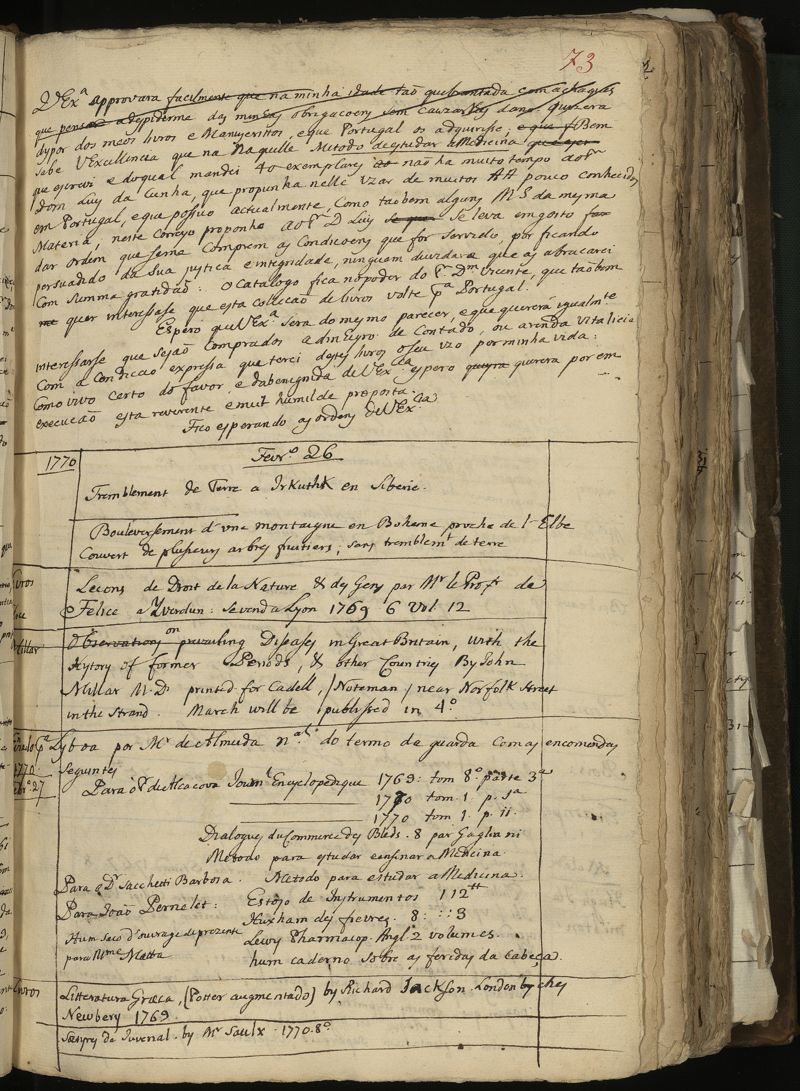 73
VExª approvara facilmente que na minha idade tão quebrantada com achaques
que pensase a dispidirme das minhas obrigacoens sem cauzar dano quizera
dispor dos meos livros e Manuscrittos, e que Portugal os adquirise; e que f Bem
sabe VExcellencia que na naquelle Methodo de estudar a Medicina
que escrevi e do qual mandei 40 exemplares não ha muito tempo ao Sr
Dom Luis da Cunha, que propunha nelle uzar de muitos AA pouco conhecidos
em Portugal, e que possuo actualmente, como taobem alguns MS da mesma
Materia; neste correyo proponho ao Sr D Luis se leva em gosto
dar ordem que se me comprem as Condicoens que for servido, por ficando
persuadido da sua justica e integridade, ninguem duvidara que as abracarei
com summa gratidão: o Catalogo fica no poder do Sr Dm Vicente, que taobem
me quer interessase que esta collecão de livros volte pª Portugal.
Espero que VExª sera do mesmo parecer, e que quererá igualmte
interessarse que sejão comprados a dinheyro de contado, ou a renda vitalicia
com a condicão expressa que terei destes livros o seu uzo por minha vida:
Como vivo certo do favor, e da benignida de VExcia espero quyra querera por em
execucão esta reverente e muit humilde proposta.
Fico esperando as ordens de VExcia
1770
Fevrº 26
Tremblement de Terre a Irkuthk en Siberie.
Bouleversement d'une montaigne en Boheme proche de l'Elbe
Couvert de plusieurs arbres fruitiers; sans tremblemt de terre
Livros
Lecons de Droit de la Nature & des Gens par Mr le Profr de
Felice a Yverdun: se vend a Lyon 1769 6 Vol 12
Millar
Observations on prevailing Diseases in Great Britain, with the
History of former Periods, & other Countries By John
Millar M.D. printed for Cadell, / Noteman / near Norfolk street
in the Strand. March will be published in 4º
pª Lisboa por Mr de Almada do termo da guarda com as encomendas
1770
Febrº 27
seguintes
Para o Sr de Alcacova Journl Encyclopedique 1769: tom 8º parte 3ª
1770 tom. 1 p. 1ª
1770 tom. 1 p. ii.
Dialogues du Commerce des Bleds. 8 par Gagliani
Metodo para estudar e ensinar a Medicina
Para o Dr Sacchetti Barbosa. Metodo para estudar a Medicina.
Para João Pernelet: Estojo de Instrumentos 112tt
Huxham des fievres. 8: :: 3
Hum saco d'ouvrage de prezente
para Mme Matta
Lewis Pharmacop. Angl. 2 volumes.
hum caderno sobre as feridas da Cabeça.
Livros
Litteratura Græca, (Potter augmentado) by Richard Jackson. London by ches
Newbery 1769
Satyres de Juvenal. by Mr Saulx. 1770. 8º